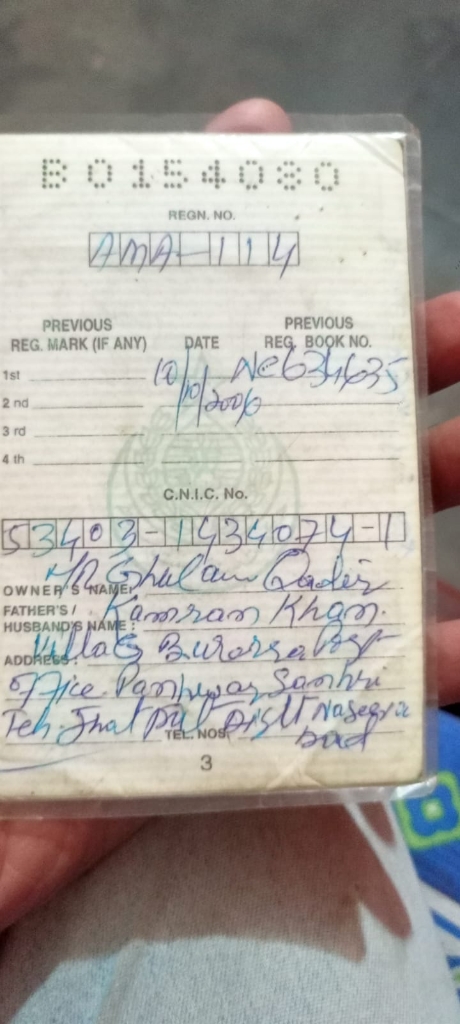 B0154080
REGN. NO.
AMA-114
PREVIOUS REG. MARK (IF ANY) DATE PREVIOUS REG. BOOK NO.
1st 10/10/2006 NC634635
2 nd
3 rd
4 th
C.N.I.C. No.
53403-1434074-1
OWNER'S NAME: Mr Ghulam Qadir
FATHER'S / HUSBAND'S NAME: Kamran Khan.
ADDRESS: Village
office Sanhri
Teh. Jhat Pat Distt Naseera
TEL. NOS. bad
3